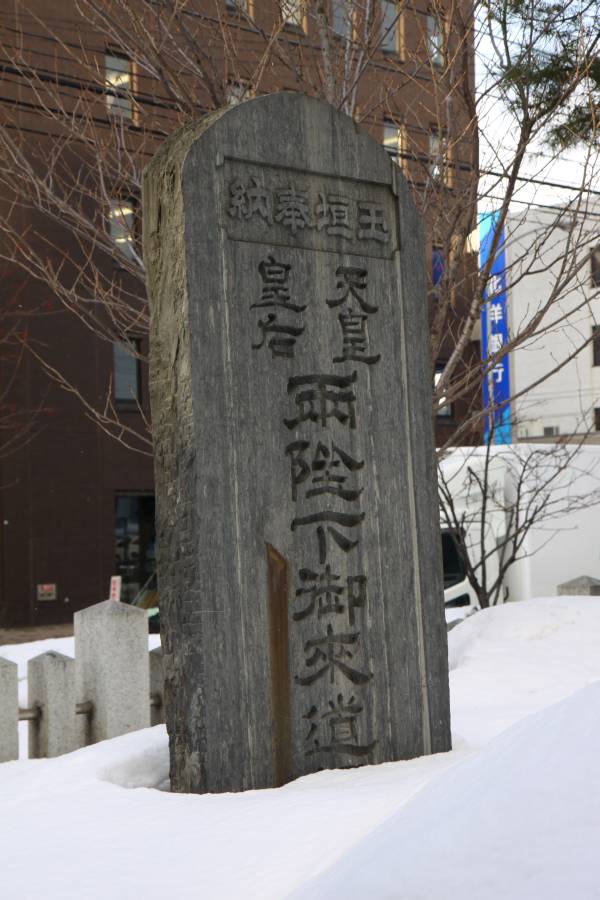 玉垣奉納
天皇
皇后
兩陛下御來道
北洋銀行